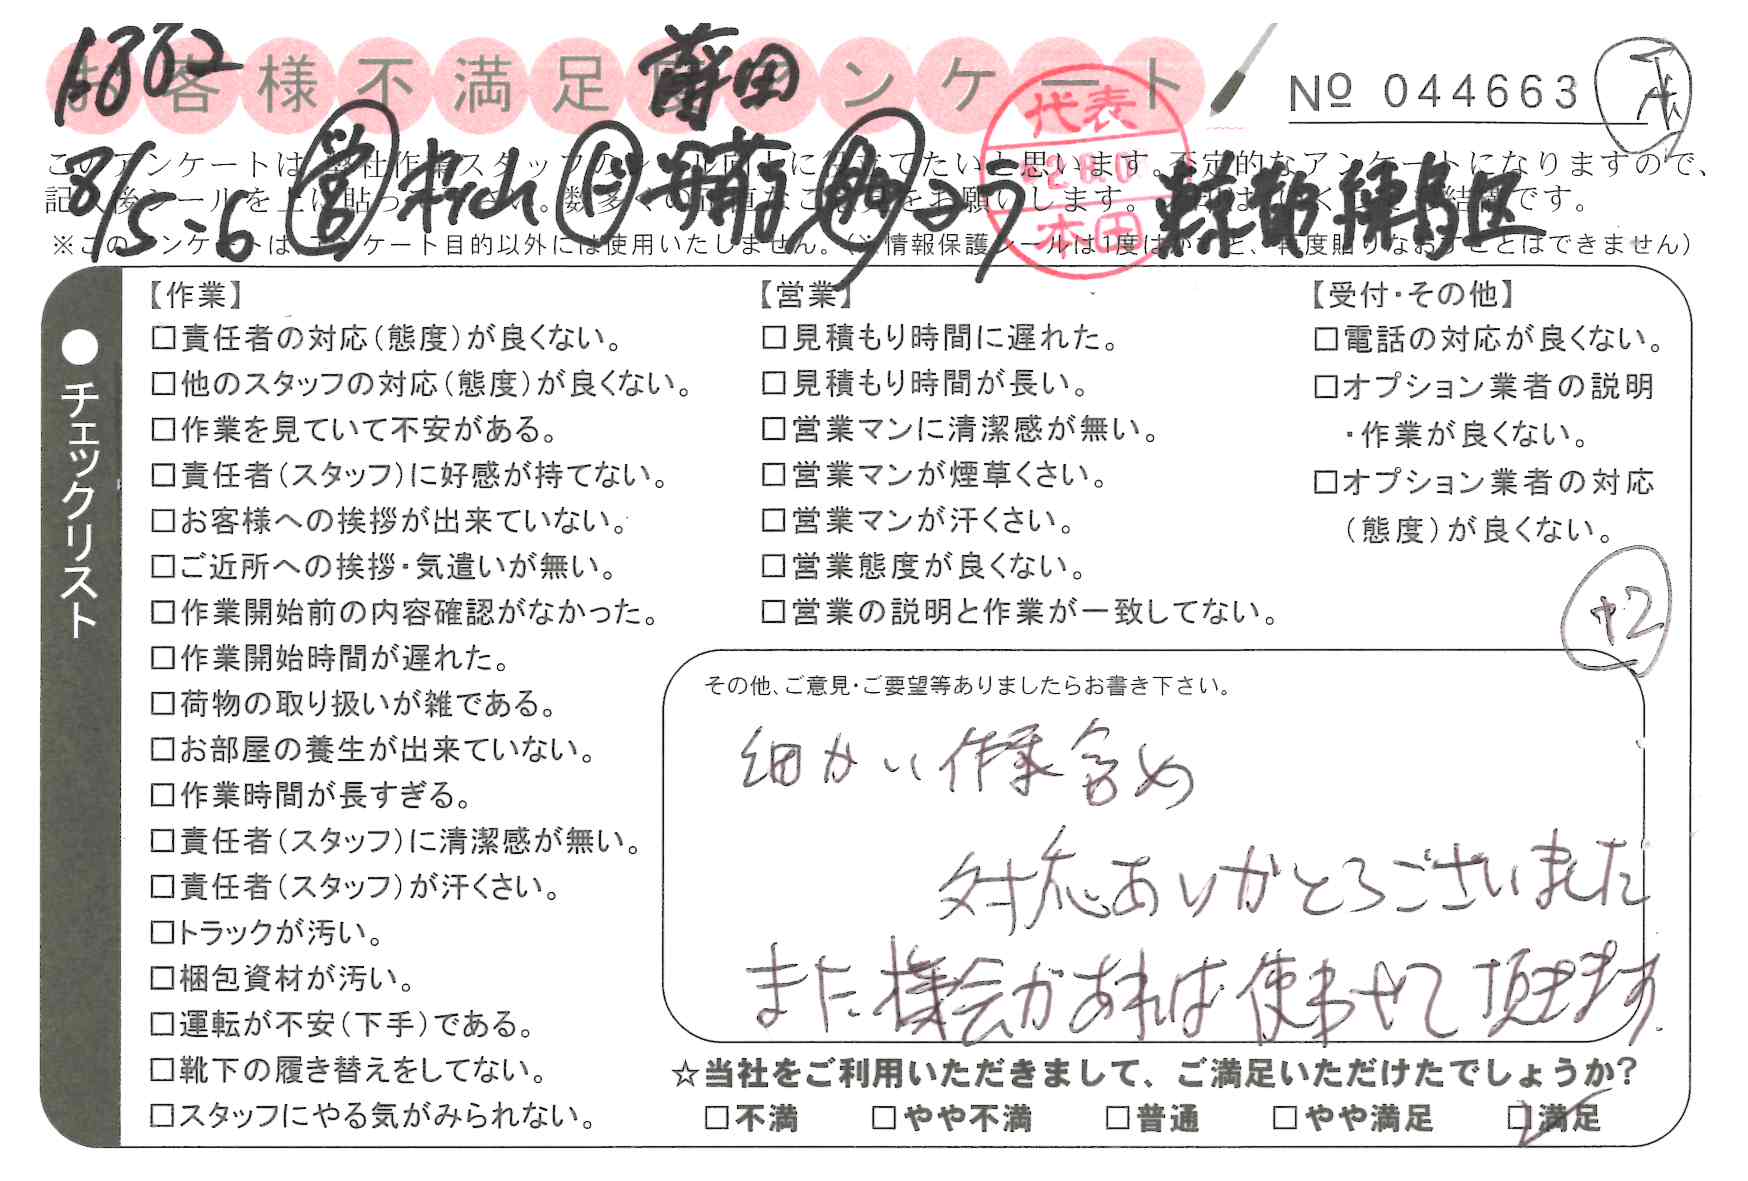 1332 蒔田
お客様不満足度アンケート
№ 044663
本
代表
2.8.0
本田
8/5-6 営 松山 ド 安蒲 助 コウ 東京都練馬区
このアンケートは、弊社作業スタッフのレベル向上に役立てたいと思います。否定的なアンケートになりますので、
記入後シールを上に貼って下さい。数多くの正直なご意見をお願いします。
※このアンケートは、アンケート目的以外には使用いたしません。(※情報保護シールは1度はがすと、再度貼りなおすことはできません)
●チェックリスト
【作業】
□責任者の対応(態度)が良くない。
□他のスタッフの対応(態度)が良くない。
□作業を見ていて不安がある。
□責任者(スタッフ)に好感が持てない。
□お客様への挨拶が出来ていない。
□ご近所への挨拶・気遣いが無い。
□作業開始前の内容確認がなかった。
□作業開始時間が遅れた。
□荷物の取り扱いが雑である。
□お部屋の養生が出来ていない。
□作業時間が長すぎる。
□責任者(スタッフ)に清潔感が無い。
□責任者(スタッフ)が汗くさい。
□トラックが汚い。
□梱包資材が汚い。
□運転が不安(下手)である。
□靴下の履き替えをしてない。
□スタッフにやる気がみられない。
【営業】
□見積もり時間に遅れた。
□見積もり時間が長い。
□営業マンに清潔感が無い。
□営業マンが煙草くさい。
□営業マンが汗くさい。
□営業態度が良くない。
□営業の説明と作業が一致してない。
【受付・その他】
□電話の対応が良くない。
□オプション業者の説明
・作業が良くない。
□オプション業者の対応
(態度)が良くない。
+2
その他、ご意見・ご要望等ありましたらお書き下さい。
細かい作業含め
対応ありがとうございました
また機会があれば使わせて頂きます
☆当社をご利用いただきまして、ご満足いただけたでしょうか?
□不満 □やや不満 □普通 □やや満足 ☑満足